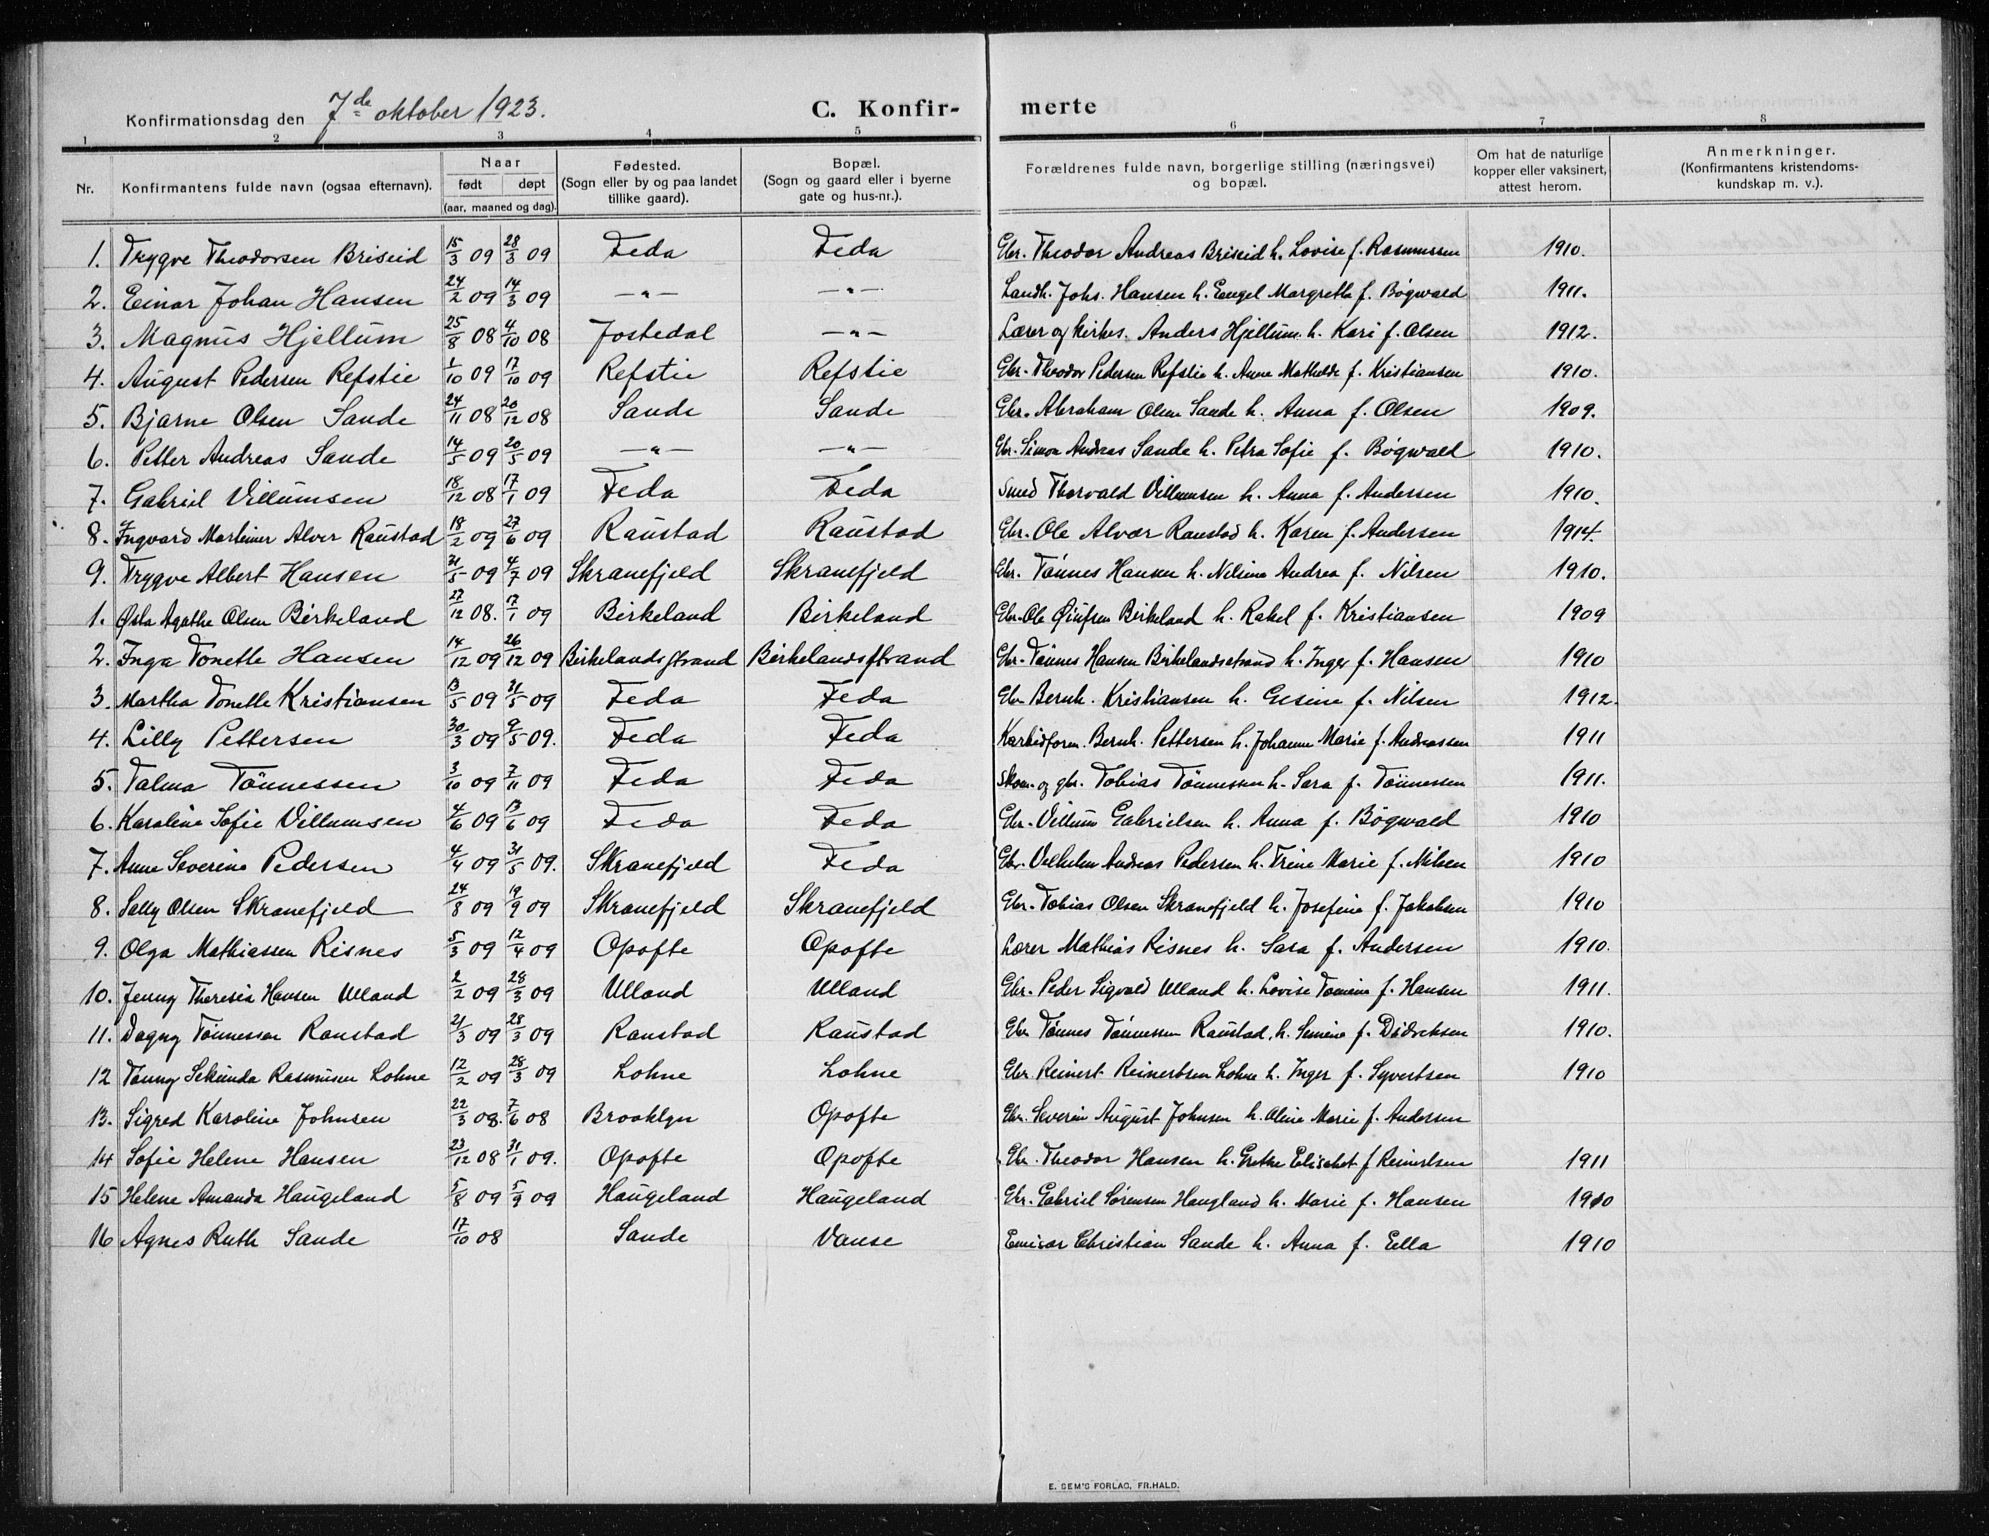 Konfirmationsdag den 7de oktober 1923. C. Konfir- merte
1 2 3 4 5 6 7 8
Nr. Konfirmantens fulde navn (ogsaa efternavn). Naar født døpt (aar, maaned og dag). Fødested. (Sogn eller by og paa landet tillike gaard). Bopæl. (Sogn og gaard eller i byerne gate og hus-nr.). Forældrenes fulde navn, borgerlige stilling (næringsvei) og bopæl. Om hat de naturlige kopper eller vaksinert, attest herom. Anmerkninger. (Konfirmantens kristendoms-kundskap m. v.).
1. Trygve Theodorsen Briseid 15/3 09 28/3 09 Feda Feda Gbr. Theodor Andreas Briseid h. Lovise f. Rasmussen 1910.
2. Einar Johan Hansen 24/2 09 14/3 09 —"— —"— Landh. Johs. Hansen h. Engel Margrethe f. Bøgwald 1911.
3. Magnus Hjellum 25/8 08 4/10 08 Jostedal —"— Lærer og kirkes. Anders Hjellum h. Kari f. Olsen 1912.
4. August Pedersen Refstie 1/10 09 17/10 09 Refstie Refstie Gbr. Theodor Pedersen Refstie h. Anne Mathilde f. Kristiansen 1910.
5. Bjarne Olsen Sande 24/11 08 20/12 08 Sande Sande Gbr. Abraham Olsen Sande h. Anna f. Olsen 1909.
6. Petter Andreas Sande 14/5 09 20/5 09 —"— —"— Gbr. Simon Andreas Sande h. Petra Sofie f. Bøgwald 1910.
7. Gabriel Villumsen 18/12 08 17/1 09 Feda Feda Smed Thorvald Villumsen h. Anna f. Andersen 1910.
8. Ingvard Martinner Alver Raustad 18/2 09 27/6 09 Raustad Raustad Gbr. Ole Alvær Raustad h. Karen f. Andersen 1914.
9. Trygve Albert Hansen 21/5 09 4/7 09 Skranefjeld Skranefjeld Gbr. Tønnes Hansen h. Nilsine Andrea f. Nilsen 1910.
1. Østa Agathe Olsen Birkeland 27/12 08. 17/1 09 Birkeland Birkeland Gbr. Ole Birkeland h. Rakel f. Kristiansen 1909
2. Inga Tonette Hansen 14/12 09 26/12 09 Birkelandsstrand Birkelandsstrand Gbr. Tønnes Hansen Birkelandsstrand h. Inger f. Hansen 1910
3. Martha Tonette Kristiansen 13/5 09 31/5 09 Feda Feda Gbr Bernh. Kristiansen h. Gesine f. Nilsen 1912.
4. Lilly Pettersen 30/3 09 9/5 09. Feda Feda Karbidform. Bernh. Pettersen h. Johanne Marie f. Andreassen 1911
5. Talma Tønnessen 3/10 09 7/11 09 Feda Feda Skom. og gbr. Tobias Tønnessen h. Sara f. Tønnessen 1911.
6. Karoline Sofie Villumsen 4/6 09 13/6 09 Feda Feda Gbr. Villum Gabrielsen h. Anna f. Bøgwald 1910
7. Anne Severine Pedersen 4/4 09 31/5 09. Skranefjeld Feda Gbr. Vilhelm Andreas Pedersen h. Trine Marie f. Nilsen 1910
8. Sally Olsen Skranefjeld 24/8 09 19/9 09 Skranefjeld Skranefjeld Gbr. Tobias Olsen Skranefjeld h. Josefine f. Jakobsen 1910
9. Olga Mathiassen Risnes 5/3 09 12/4 09 Opofte Opofte Lærer Mathias Risnes h. Sara f. Andersen 1910.
10. Jenny Theresia Hansen Ulland 2/2 09 28/3 09 Ulland Ulland Gbr. Peder Sigvald Ulland h. Lovise Tomine f. Hansen 1911.
11. Dagny Tønnessen Raustad 21/3 09 28/3 09 Raustad Raustad Gbr Tønnes Tønnessen Raustad, h. Semine f. Didriksen 1910.
12 Tanny Sekunda Rasmusen Lohne 12/2 09 28/3 09 Lohne Lohne Gbr. Reinert Reinertsen Lohne h. Inger f. Syvertsen 1910
13. Sigred Karoline Johnsen 22/3 08. 7/6 08 Brooklyn Opofte Gbr. Severin August Johnsen h. Oline Marie f. Andersen
14 Sofie Helene Hansen 23/12 08 31/1 09. Opofte Opofte Gbr. Theodor Hansen h. Grethe Elisebet f Reinertsen 1911
15 Helene Amanda Haugeland 5/8 09 5/9 09 Haugeland Haugeland Gbr. Gabriel Sørensen Haugland h. Marie f. Hansen 1910
16 Agnes Ruth Sande 17/10 08 Sande Vanse Emisær Christian Sande h. Anna f. Eella 1910
E. SEM'S FORLAG, FR.HALD.